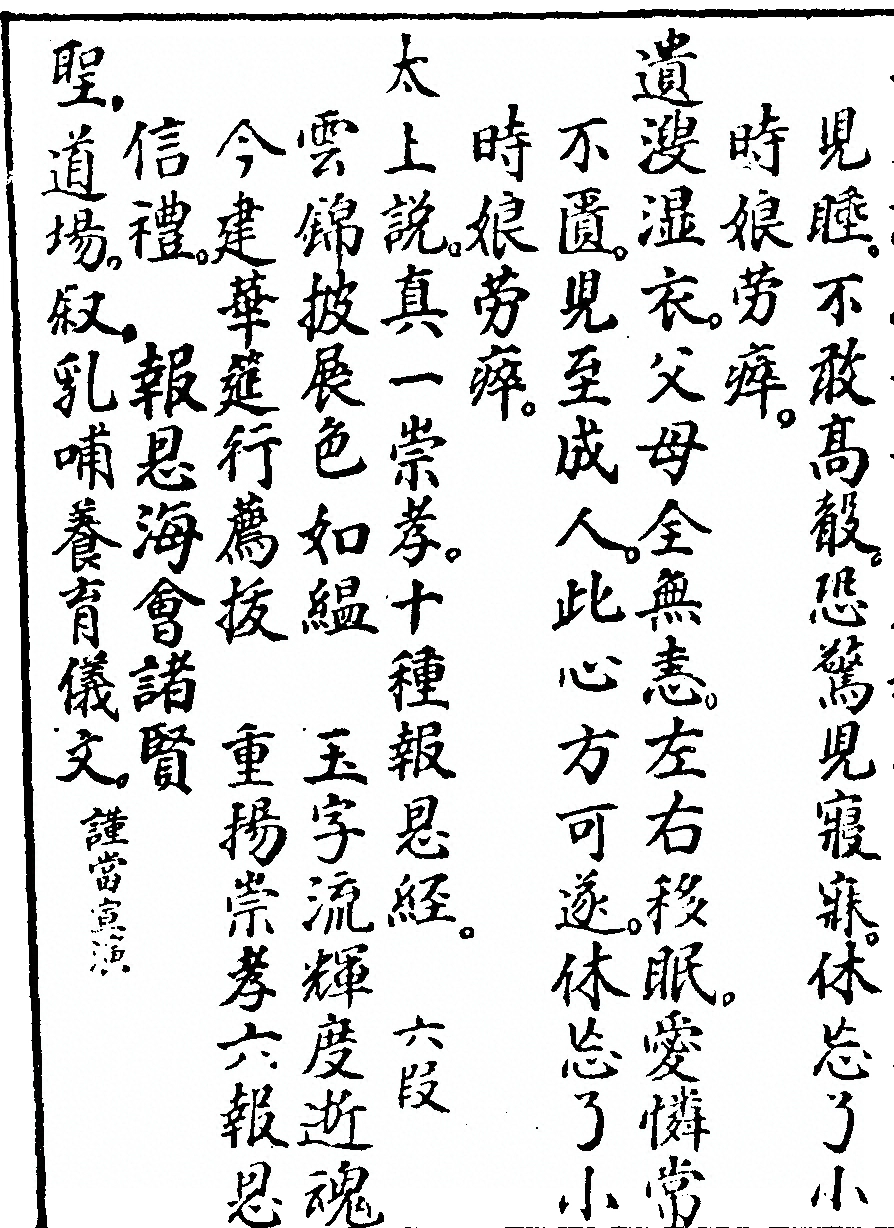 児睡。不敢高聲。恐驚児寢寐。休忘了小
時娘劳瘁。
遺溲湿衣。父母全無恚。左右移眠。愛憐常
不匱。児至成人。此心方可遂。休忘了小
時娘劳瘁。
太上説。真一崇孝。十種報恩経。 六段
雲錦披展色如緼 玉字流輝度逝魂
今建華筵行薦拔 重揚崇孝六報恩
信禮。 報恩海會諸賢
聖。道場。叙。乳哺養育儀文。謹當宣演